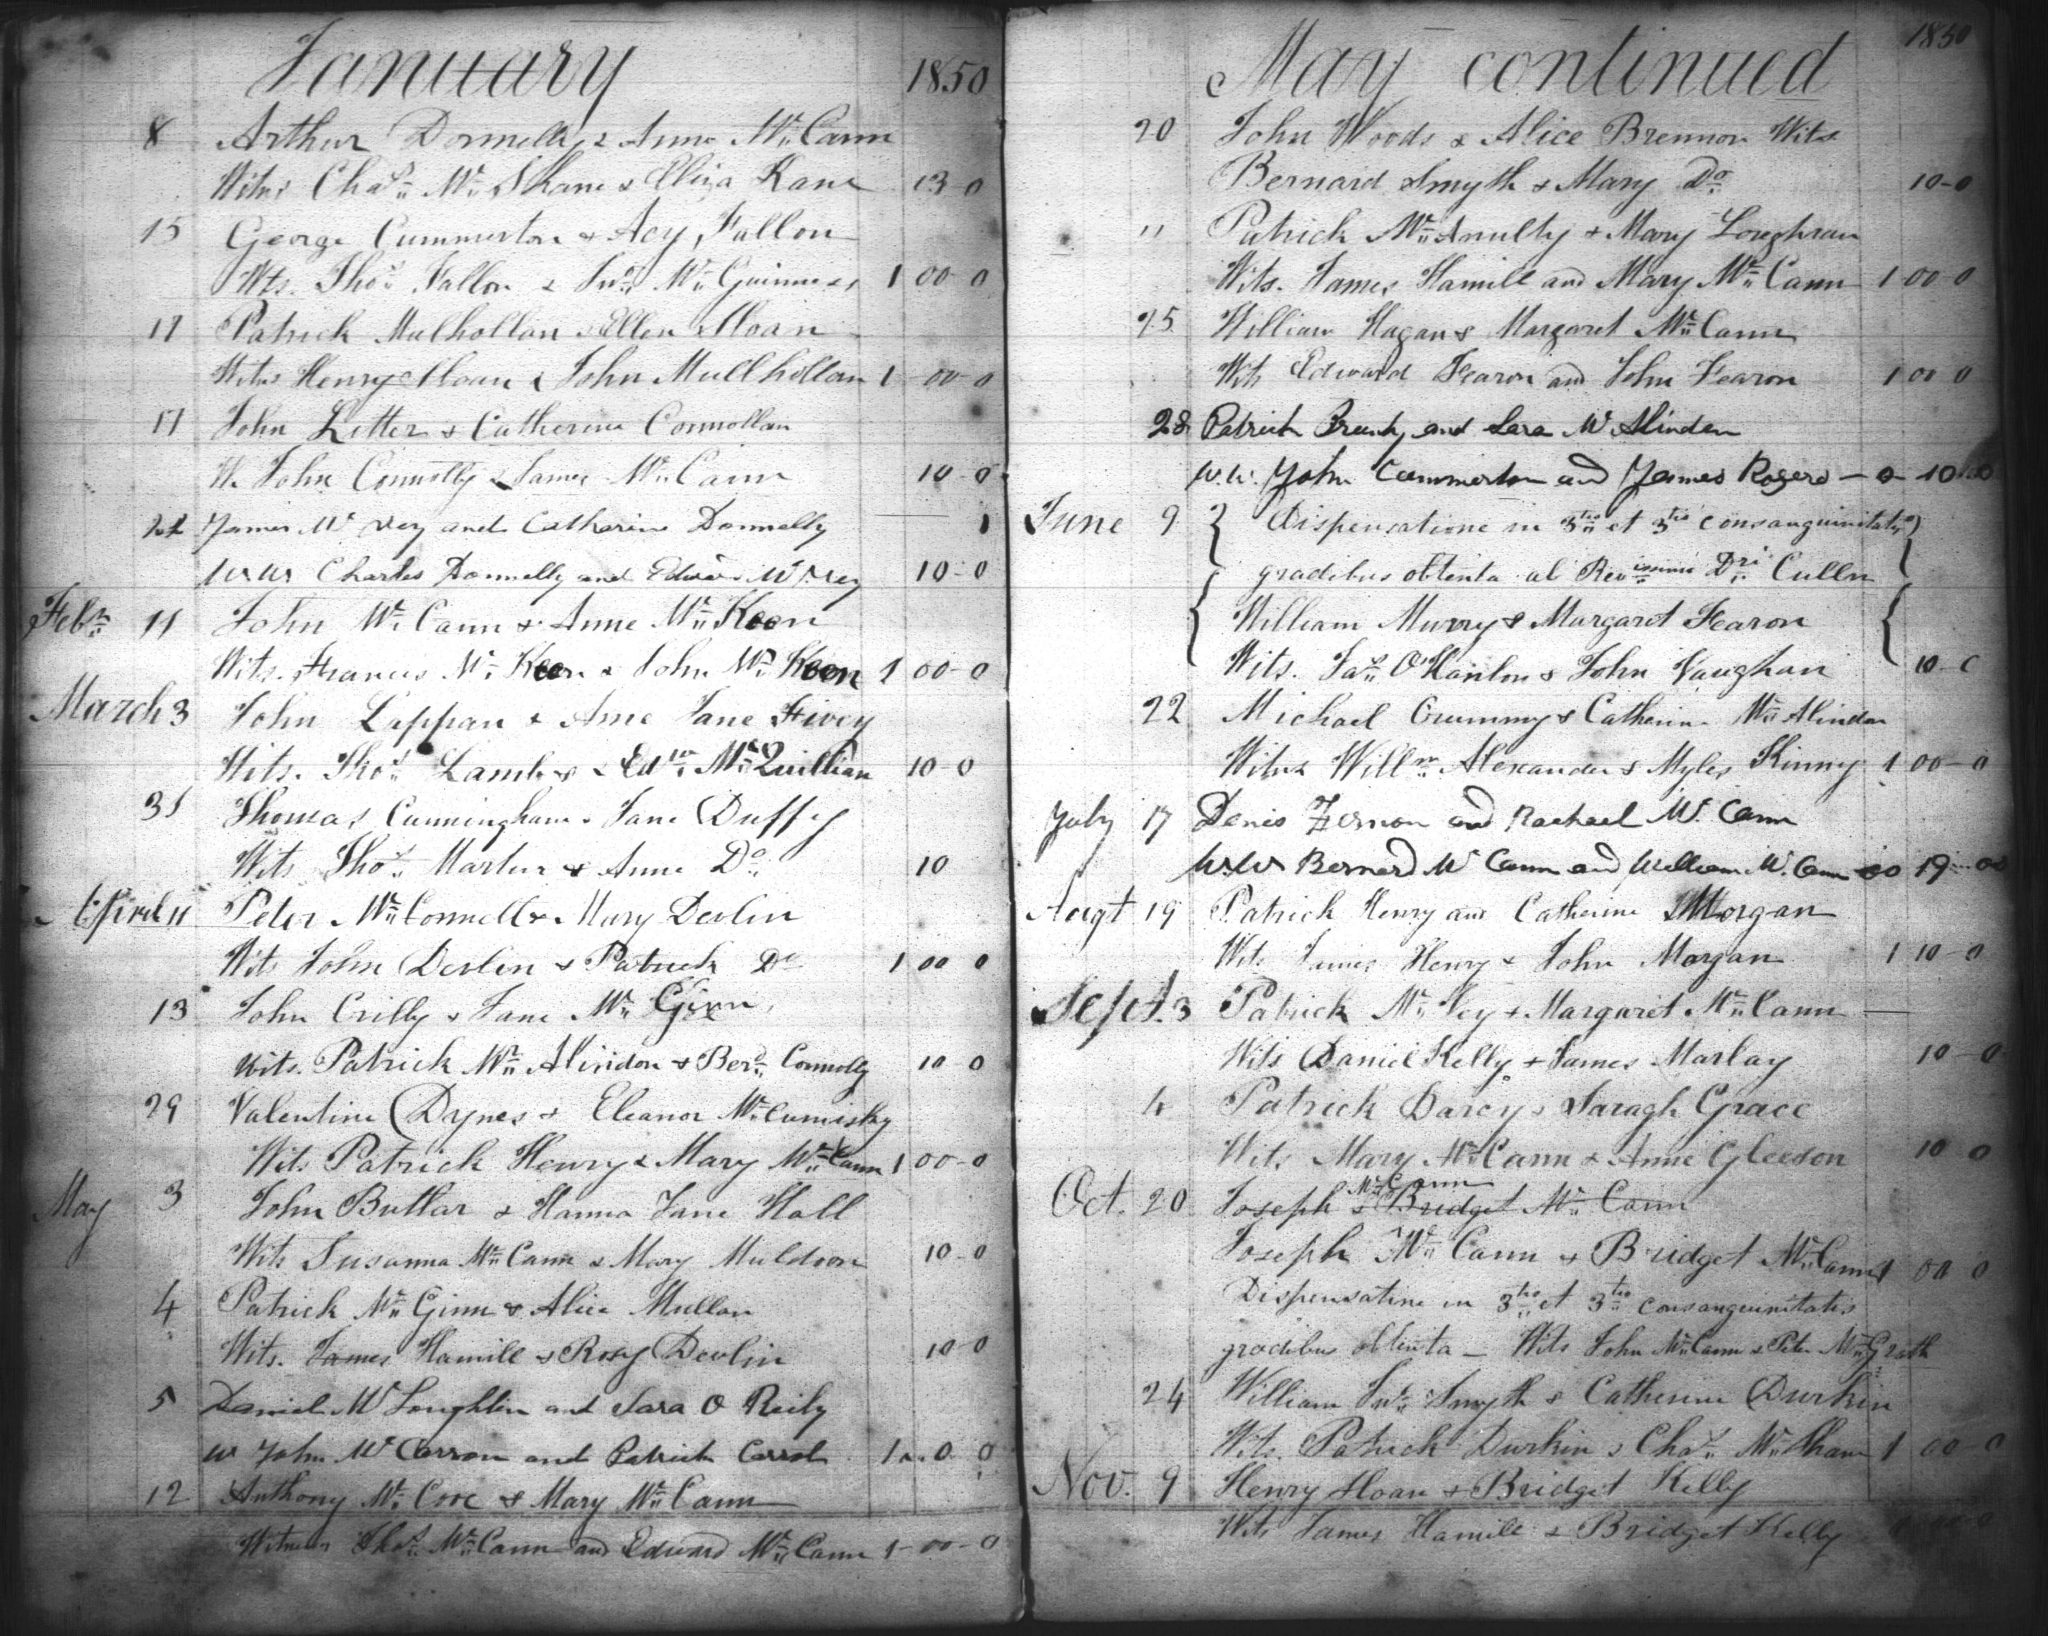 January 1850
8 Arthur Donnelly & Anne Mc Cann
Wits Chas Mc Shane & Eliza Kane 13 0
15 George Cummerton & Acy Fallon
Wts. Thos Fallon & Jno Mc Guinness 1 00 0
17 Patrick Mulhollan & Ellen Sloan
Wits Henry Sloan & John Mullhollan 1 00 0
17 John Litter & Catherine Connollan
W. John Connolly & James Mc Cann 10 0
James Mc Vey and Catherine Donnelly
W W Charles Donnelly and Edward Mc Vey 10 0
Febr 11 John Mc Cann & Anne Mc Keon
Wits. Francis Mc Keon & John Mc Keon 1 00 0
March 3 John Lappan & Ane Jane Fivey
Wits. Thos Lamb & Edwd Mc Quillian 10 0
31 Thomas Cunningham & Jane Duffy
Wits Thos Martin & Anne Do 10
April 11 Peter Mc Connell & Mary Devlin
Wits John Devlin & Patrick Do 1 00 0
13 John Crilly & Jane Mc Ginn
Wits. Patrick Mc Alindon & Berd Connolly 10 0
29 Valentine Dynes & Eleanor Mc Cumisky
Wits Patrick Henry & Mary Mc Cann 1 00-0
May 3 John Buttar & Hanna Jane Hall
Wits Susanna Mc Cann & Mary Muldoon 10-0
4 Patrick Mc Ginn & Alice Mullan
Wits. James Hamill & Rosy Devlin 10-0
5 Daniel Mc Loughlin and Sara O Reily
W John Mc Carron and Patrick Carrol 1 . 0 0
12 Anthony Mc Cooe & Mary Mc Cann
Witness Thos Mc Cann and Edward Mc Cann 1-00-0
May continued 1850
20 John Woods & Alice Brennon Wits
Bernard Smyth & Mary Do 10-0
" Patrick Mc Anulty & Mary Loughran
Wits. James Hamill and Mary Mc Cann 1 00 0
25 William Hagan & Margaret Mc Cann
Wits Edward Fearon and John Fearon 1 00 0
28 Patrick and Sara Mc Alinden
W.W. John Cummerton and James Rogers - 0 - 10
June 9 { Dispensatione in 3tio et 3tio consanguinitatis }
gradibus obtenta ab Revissimi Dri Cullen
{ William Murry & Margaret Fearon {
Wits. Jas O'Hanlon & John Vaughan 10-0
22 Michael Crummy & Catherine Mc Alindon
Wits Willm Alexander & Myles Kinny 1 00-0
July 17 Denis Vernon and Rachael Mc Cann
W.W Bernard Mc Cann and William Mc Cann 00 19 00
Augt 19 Patrick Henry and Catherine Morgan
Wits James Henry & John Morgan 1 10-0
Sept. 3 Patrick Mc Vey & Margaret Mc Cann
Wits Daniel Kelly & James Marlay 10-0
4 Patrick Darcy & Saragh Grace
Wits Mary Mc Cann & Anne Gleeson 10 0
Oct. 20 Joseph Mc Cann & Bridget Mc Cann
Joseph Mc Cann & Bridget Mc Cann 1 00 0
Dispensatine in 3tio et 3tio consanguinitatis
gradibus obtenta - Wits John Mc Cann & Peter Mc Grath
24 William Jno Smyth & Catherine Durkin
Wits. Patrick Durkin & Chas Mc Shane 1 00-0
Nov. 9 Henry Sloan & Bridget Kelly
Wits James Hamill & Bridget Kelly